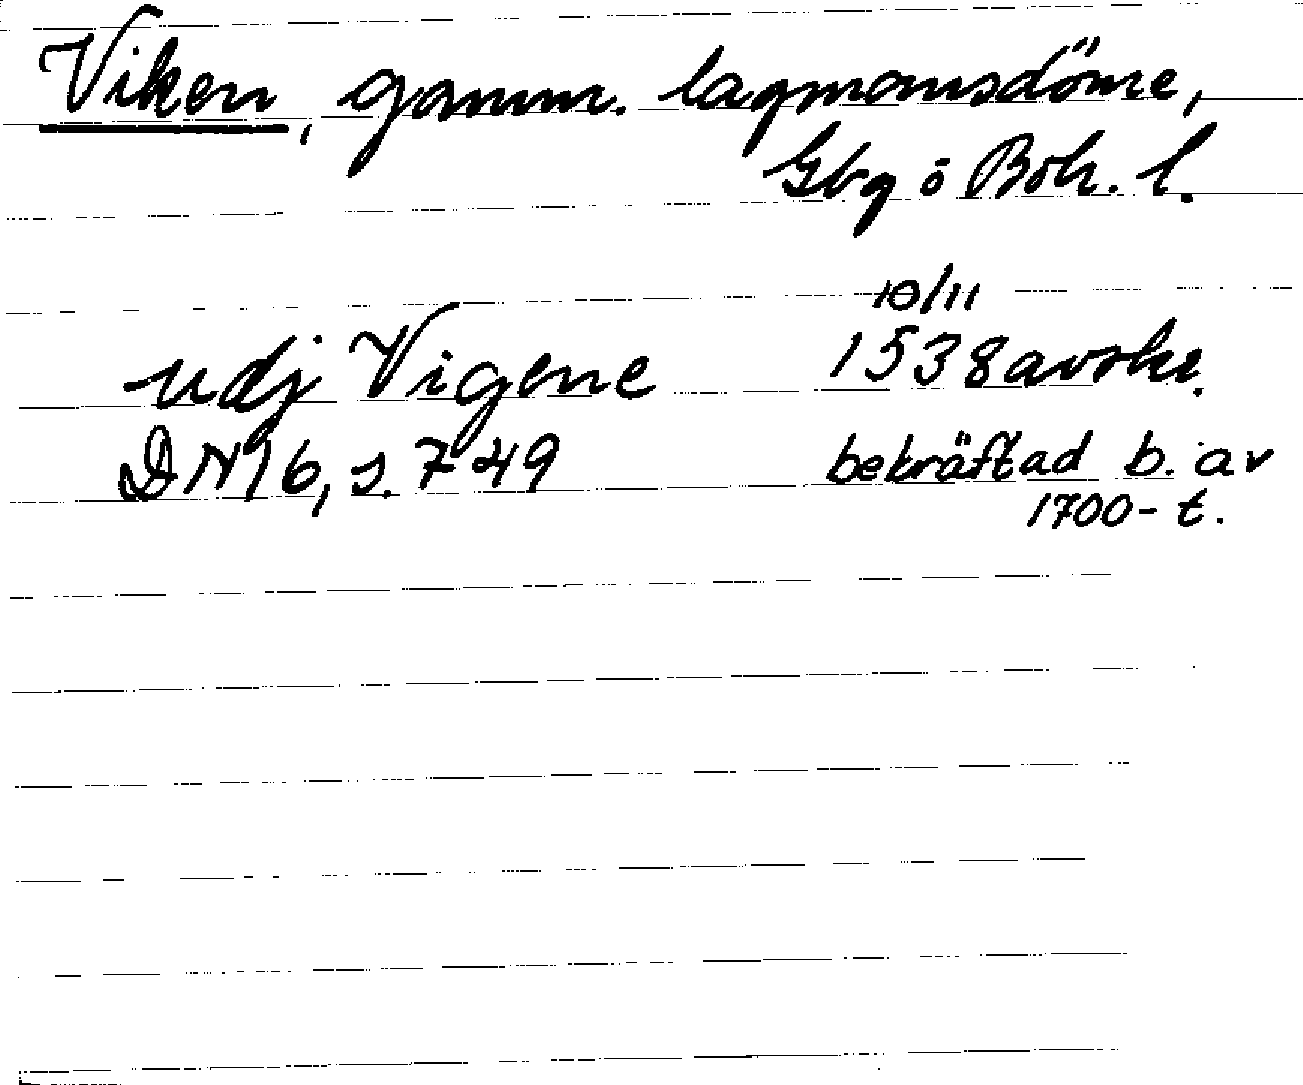 Viken, gamm. lagmansdöme,
Gbg o Boh. l.
10/11
udj Vigene 1538 avskr.
DN 16, s. 749 bekräftad b. av
1700-t.